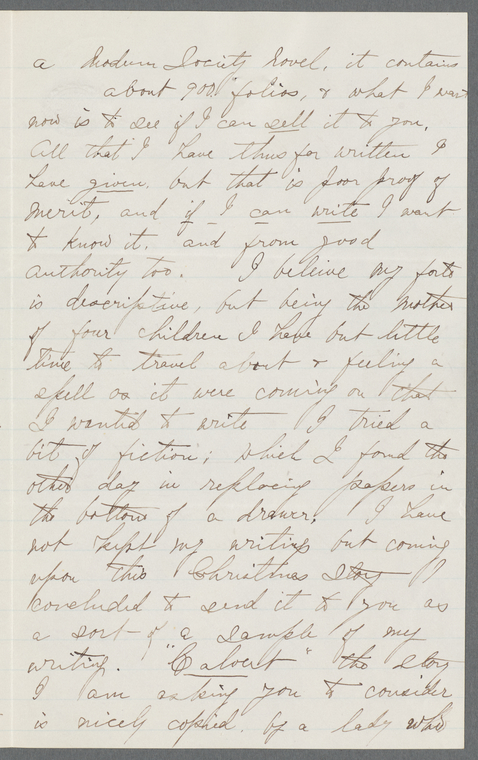 a Modern Society Novel, it contains
about 900 folios, & what I want
now is to see if I can sell it to you.
All that I have thus far written I
have given. but that is poor proof of
merit, and if I can write I want
to know it. and from good
authority too. I beleive my forte
is descriptive, but being the mother
of four children I have but little
time to travel about & feeling a
spell as it were coming on that
I wanted to write I tried a
bit of fiction; which I found the
other day in replacing papers in
the bottom of a drawer. I have
not kept my writings but coming
upon this Christmas Story I
concluded to send it to you as
a sort of "a sample of my
writing. "Calvert" the story
I am asking you to consider
is nicely copied. by a lady who